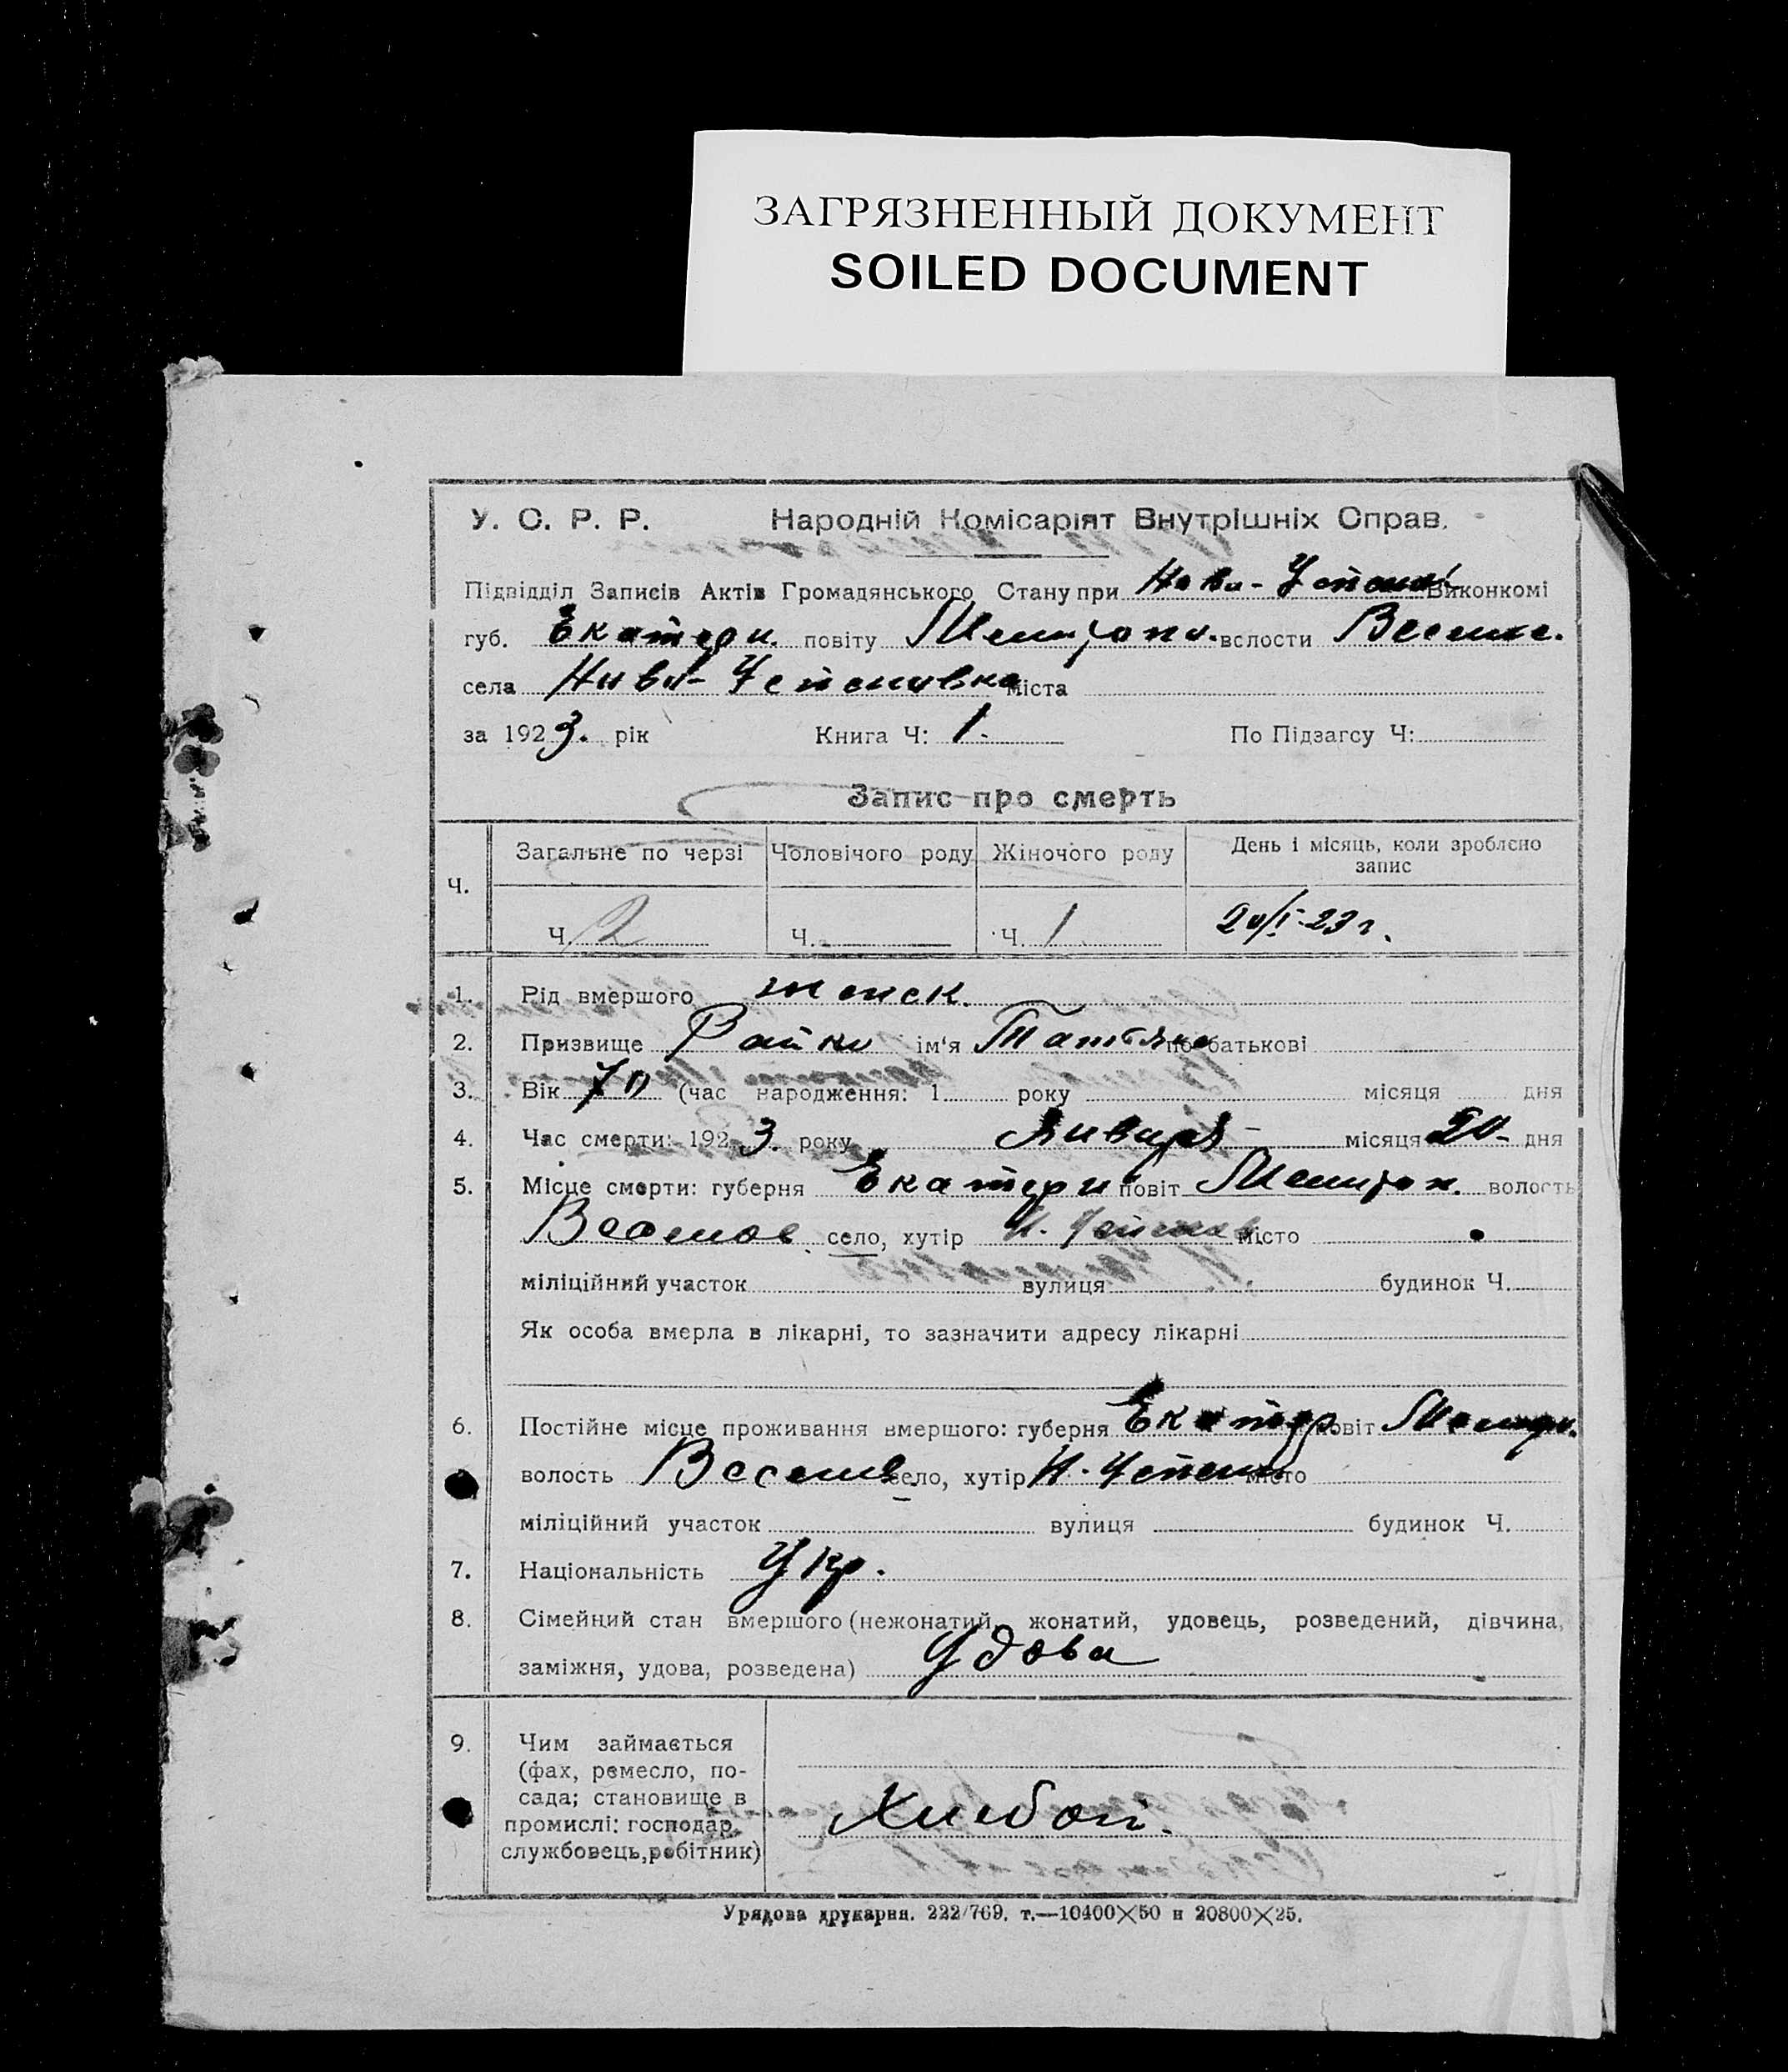 ЗАГРЯЗНЕННЫЙ ДОКУМЕНТ
SOILED DOCUMENT
У. С. Р. Р. Народній Комісаріят Внутрішніх Справ.
Підвідділ Записів Актів Громадянського Стану при Ново-Успен. Виконкомі
губ. Екатери. повіту Мелитопол. волости Весел.
села Ново-Успеновка міста
за 1923. рік Книга Ч: 1. По Підзагсу Ч:
Запис про смерть
Загальне по черзі Чоловічого роду Жіночого роду День і місяць, коли зроблено запис
Ч.
Ч. 2 Ч. Ч. 1 20/I-23 г.
1. Рід вмершого женск.
2. Призвище Райко ім'я Татьяна по батькові
3. Вік 70 (час народження: 1 року місяця дня
4. Час смерти: 1923. року Января місяця 20 дня
5. Місце смерти: губерня Екатери повіт Мелитоп. волость
Веселов. село, хутір Н. Успенов місто
міліційний участок вулиця будинок Ч.
Як особа вмерла в лікарні, то зазначити адресу лікарні
6. Постійне місце проживання вмершого: губерня Екатер. повіт Мелитоп.
волость Веселов село, хутір Н. Успен місто
міліційний участок вулиця будинок Ч.
7. Національність Укр.
8. Сімейний стан вмершого (нежонатий, жонатий, удовець, розведений, дівчина,
заміжня, удова, розведена) Удова
9. Чим займається
(фах, ремесло, по-
сада; становище в
промислі: господар,
службовець, робітник)
Хлебоп.
Урядова друкарня. 222/769. т.—10400×50 и 20800×25.